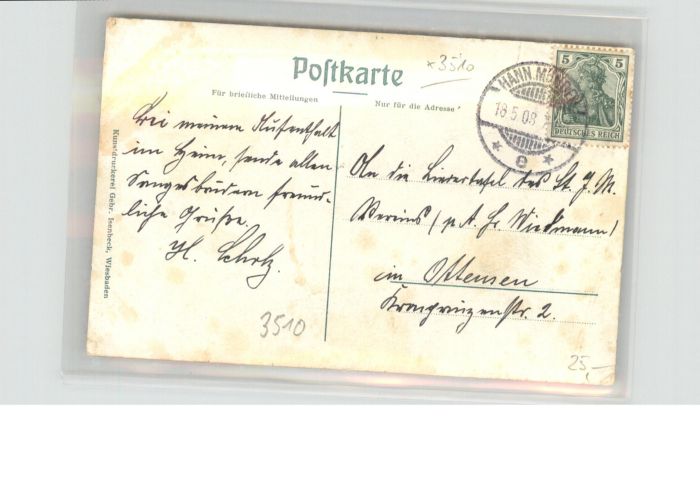 Postkarte
*3510
Für briefliche Mitteilungen
Nur für die Adresse
HANN. MÜNDEN
18.5.08.
* e *
5 5
DEUTSCHES REICH
Bei meinem Aufenthalt
im Heim, sende allen
Sangesbrüdern freund-
liche Grüße.
H. Scholz.
An die Liedertafel des St. J. M.
Vereins (p. A. Hr Wiedmann)
in Ottensen
Kronprinzenstr. 2.
Kunstdruckerei Gebr. Isenbeck, Wiesbaden
3510
25,-